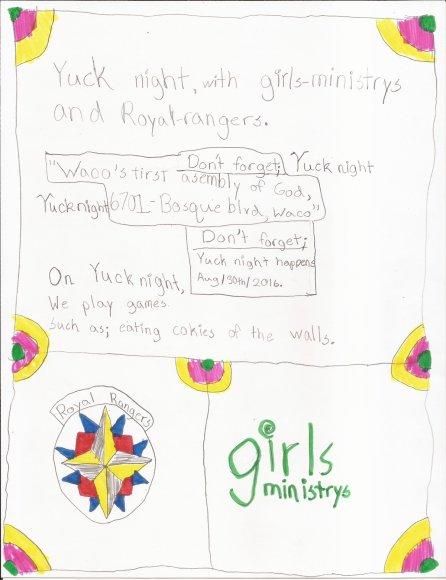 Yuck night, with girls-ministrys
and Royal-rangers.
Don't forget; Yuck night
"Waco's first
asembly of God,
Yuck night 6701-Bosque blvd, Waco"
Don't forget;
Yuck night happens
Aug/30th/2016.
On Yuck night,
We play games
such as; eating cokies of the walls.
Royal Rangers
girls
ministrys